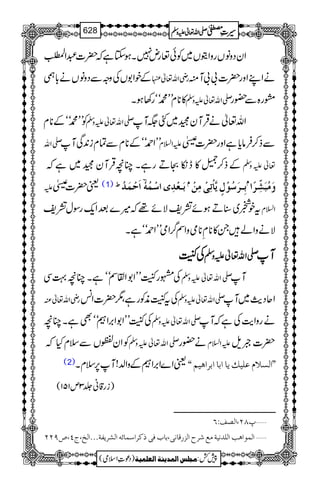 سیرتِ مصطفی صلی اللہ تعالیٰ علیہ وسلم
628
ان دونوں روایتوں میں کوئی تعارض نہیں۔ ہو سکتا ہے کہ حضرت عبدالمطلب
اور حضرت بی بی آمنہ رضی اللہ تعالیٰ عنہا کے خوابوں کی وجہ سے دونوں نے باہمی
مشورہ سے حضور صلی اللہ تعالیٰ علیہ وسلم کا نام ”محمد“ رکھا ہو۔
اللہ تعالیٰ نے قرآن مجید میں کئی جگہ آپ صلی اللہ تعالیٰ علیہ وسلم کو ”محمد“ کے نام
سے ذکر فرمایا ہے اور حضرت عیسیٰ علیہ السلام ”احمد“ کے نام سے تمام زندگی آپ صلی اللہ
تعالیٰ علیہ وسلم کے ذکر جمیل کا ڈنکا بجاتے رہے۔ چنانچہ قرآن مجید میں ہے کہ
وَمُبَشِّرًۢا بِرَسُوْلٍ یَّاْتِیْ مِنْۢ بَعْدِی اسْمُهٗۤ اَحْمَدُ ؕ (1) یعنی حضرت عیسیٰ علیہ
السلام یہ خوشخبری سناتے ہوئے تشریف لائے تھے کہ میرے بعد ایک رسول تشریف
لانے والے ہیں جن کا نام نامی و اسم گرامی ”احمد“ ہے۔
آپ صلی اللہ تعالیٰ علیہ وسلم کی کنیت
آپ صلی اللہ تعالیٰ علیہ وسلم کی مشہور کنیت ”ابوالقاسم“ ہے۔ چنانچہ بہت سی
احادیث میں آپ صلی اللہ تعالیٰ علیہ وسلم کی یہ کنیت مذکور ہے، مگر حضرت انس رضی اللہ تعالیٰ عنہ
نے روایت کی ہے کہ آپ صلی اللہ تعالیٰ علیہ وسلم کی کنیت ”ابو ابراہیم“ بھی ہے۔ چنانچہ
حضرت جبریل علیہ السلام نے حضور صلی اللہ تعالیٰ علیہ وسلم کو ان لفظوں سے سلام کیا کہ
”السلام علیك یا ابا ابراھیم“ یعنی اے ابراہیم کے والد! آپ پر سلام۔ (2)
(زرقانی جلد ۳ ص ۱۵۱)
پ۲۸، الصف: ۶
المواھب اللدنیة مع شرح الزرقانی، باب فی ذکر اسمائه الشریفة...الخ، ج۴، ص۲۲۹
پیش کش: مجلس المدینة العلمیة (دعوتِ اسلامی)